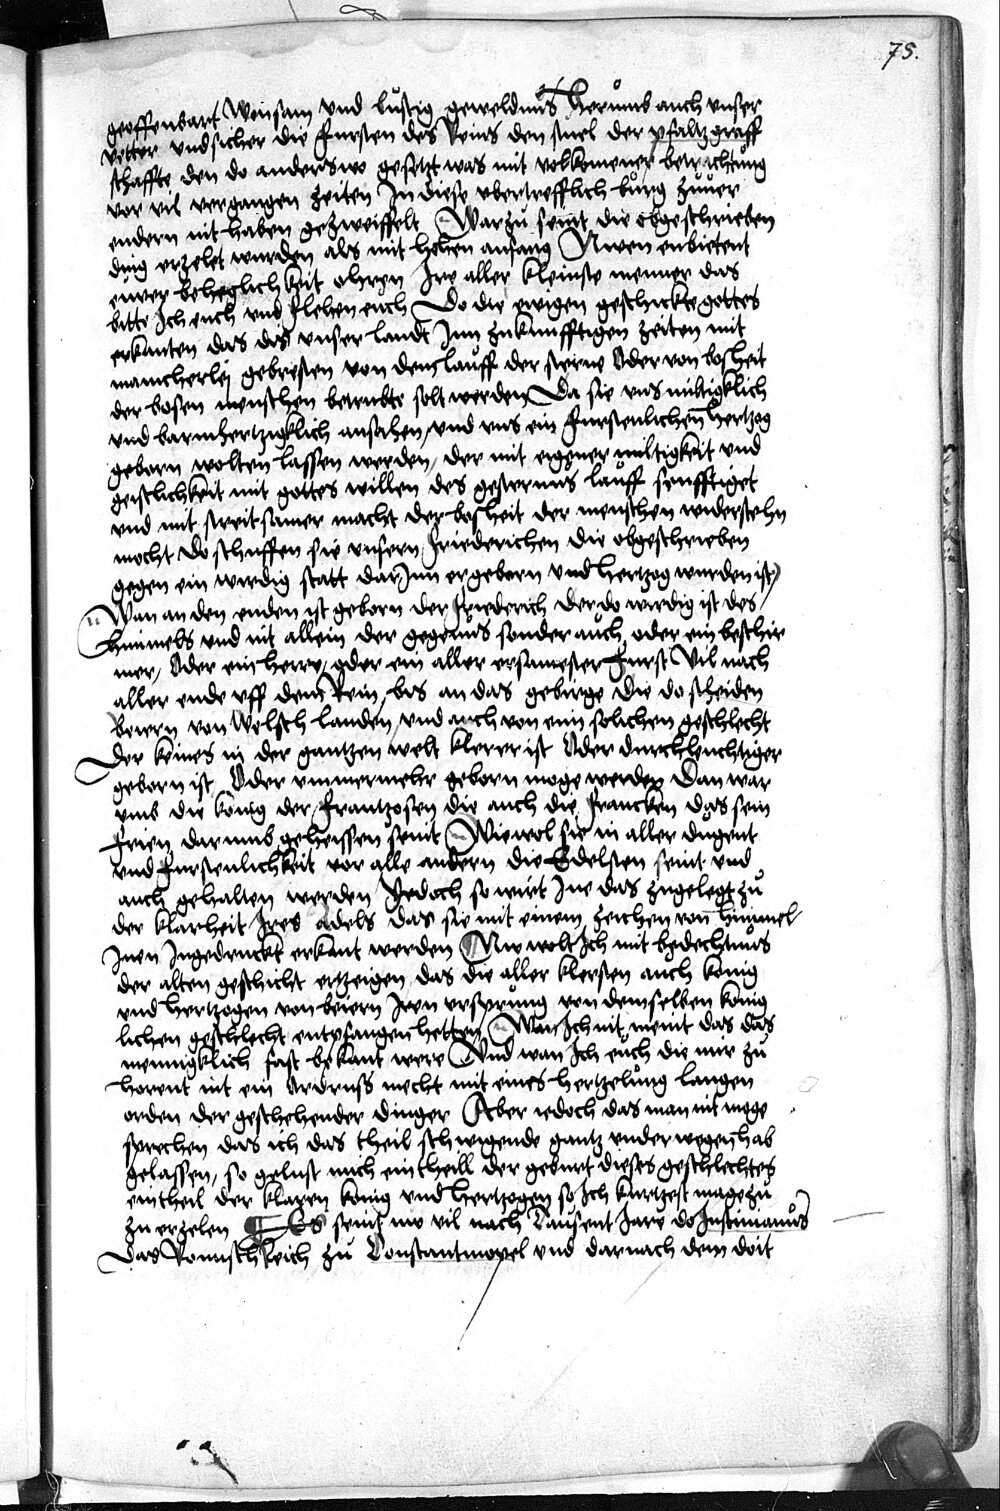 75.
geoffenbart Weinsam vnd lustig geweldnus Herumb auch vnser
vetter vnd sicher die Fursten des Reins den stuel der pfaltzgraff
schaffte den do anderswo gesetzt was mit volkomener betrachtung
vor vil vergangen zeiten In diese vbertrefflich burg zuuer
endern nit haben gezweiffelt Warzu seint die obgeschrieben
ding erzelet wurden als mit hohen anfang Nwen enbietent
euwer beheglichkeit ohren Ire aller kleinste menner das
bitte Ich euch vnd flehen euch Do die ewigen geschickte gottes
erkanten das dis vnser landt Inn zukunfftigen zeiten mit
mancherlej gebresten von dem lauff der sterne Oder von bosheit
der bosen menschen betrubte solt werden Da sie vns miltigklich
vnd barmhertzigklich ansahen, vnd vns ein furstenlichen hertzog
geborn wolten lassen werden, der mit eigener miltigkeit vnd
geistlichkeit mit gottes willen des gestirnus lauff senfftiget
vnd mit streitsamer macht der bosheit der menschen widerstehn
mocht Do schuffen sie vnsern Friederichen die obgeschrieben
gegen ein wirdig statt dar Inn er geborn vnd hertzog wurden ist,
Wan an den enden ist geborn der Friederich der do wirdig ist des
himmels vnd nit allein der gegenus sonder auch oder ein beschir
mer, Oder ein herre, oder ein aller ersamester Furst Vil nach
aller ende vff dem Rein, bis an das gebirge die do scheiden
beiern von Welsch landen, vnd auch von eim solichen geschlecht
Der keines in der gantzen welt klerer ist Oder durchleuchtiger
geborn ist Oder vmmermehr geborn moge werden Dan war
vmb die konig der Frantzosen die auch die Francken das sein
Frien darumb geheissen seint Wiewol sie in aller dugent
vnd furstenlichkeit vor alle andern die Edelsten seint vnd
auch gehalten werden Yedoch so wirt Ine das zugelegt zu
der klarheit Ires adels das sie mit einem zeichen von himmel
Inen Ingedruckt erkant werden Nw wolt Ich mit bedechtnus
der alten geschicht erzeigen das die aller klersten auch konig
vnd hertzogen von beiern Iren vrsprung von demselben konig
lichen geschlecht entpfangen hetten Wan Ich nit meint das das
mennigklich fast bekant were Vnd wan Ich euch die mir zu
horent nit ein Vrdruss mecht mit eines hertzelung langen
orden der geschehender dinger Aber iedoch das man nit moge
sprechen das ich das theil schwigende gantz vnderwegen hab
gelassen, so gelust mich ein theill der geburt dieses geschlechtes
ein theil der klaren konig vnd hertzogen so Ich kurtzest mage zu
zu erzelen Es seint nw vil nach Tausent Jare do Justinianus
Das Romisch Reich zu Constantinopel vnd darnach dem doit